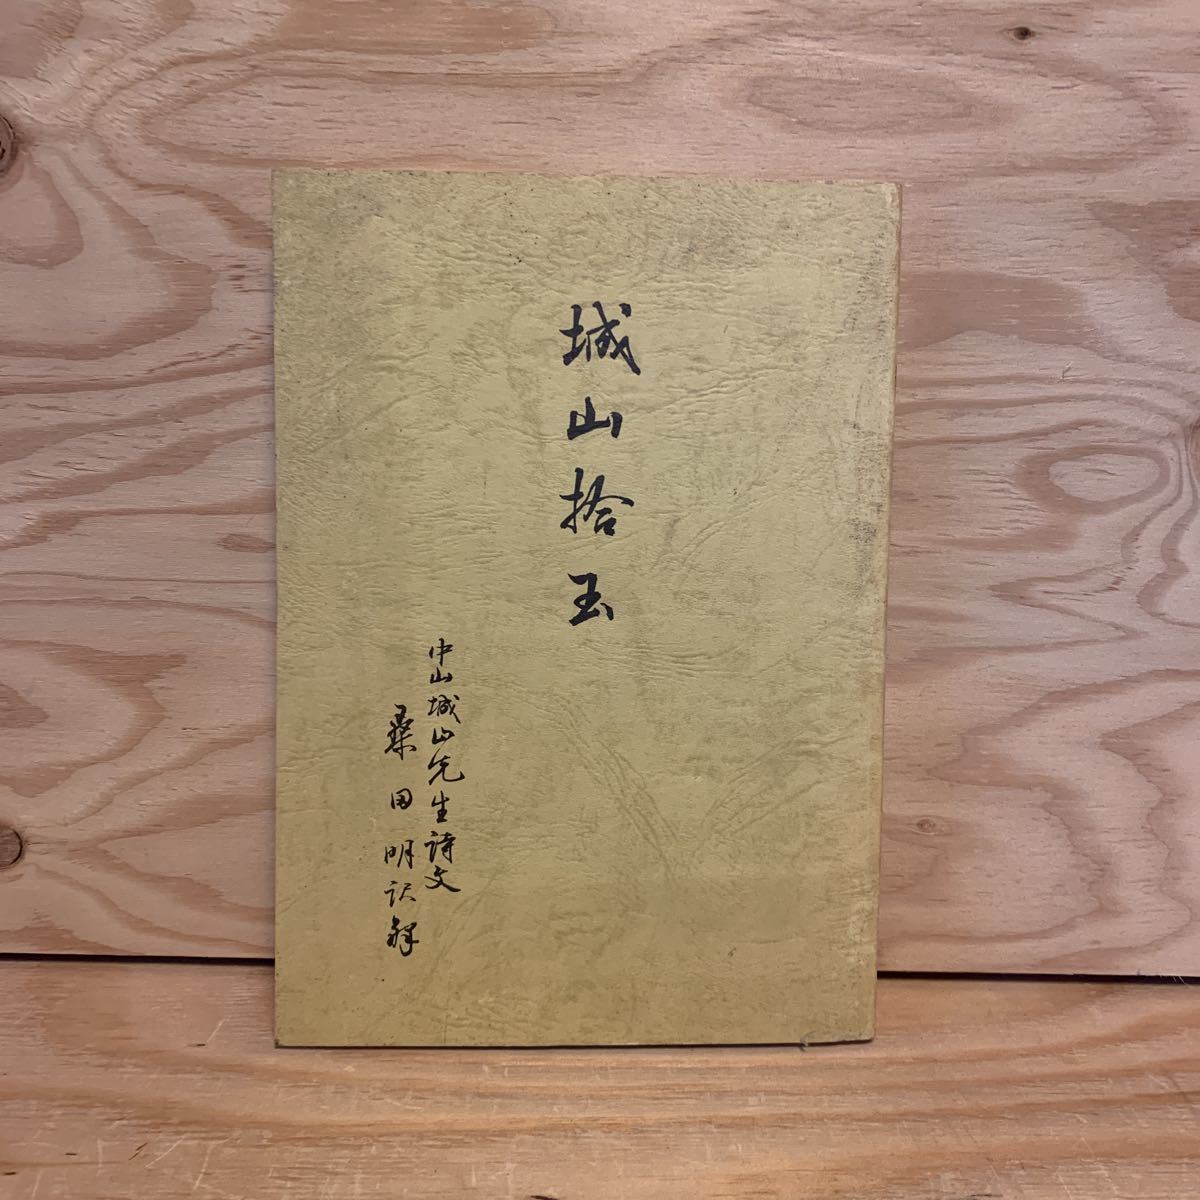 城山拾玉
中山城山先生詩文
桑田明訳解